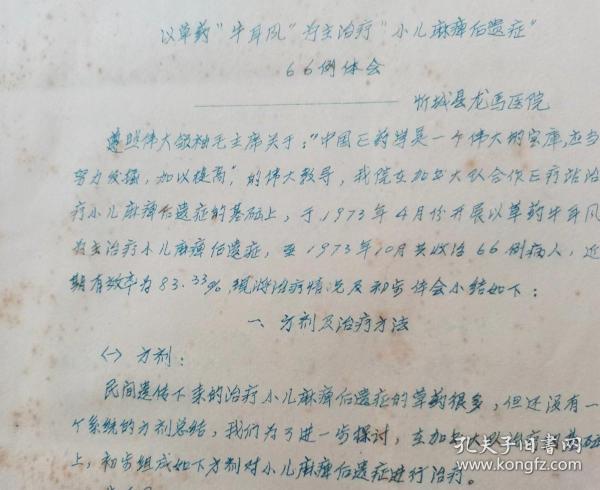 以草药"牛耳风"为主治疗"小儿麻痺后遗症"
66例体会
忻城县龙马医院
遵照伟大领袖毛主席关于："中国医药学是一个伟大的宝库，应当
努力发掘，加以提高"的伟大教导，我院在加书大队合作医疗站治
疗小儿麻痺后遗症的基础上，于1973年4月份开展以草药牛耳风
为主治疗小儿麻痺后遗症，至1973年10月共收治66例病人，近
期有效率为83.33%，现将治疗情况及初步体会小结如下：
一、方剂及治疗方法
㈠方剂：
民间遗传下来的治疗小儿麻痺后遗症的草药很多，但还没有一
个系统的方剂总结，我们为了进一步探讨，在加书大队的
上，初步组成如下方剂对小儿麻痺后遗症进行治疗。
孔夫子旧书网
www.kongfz.com